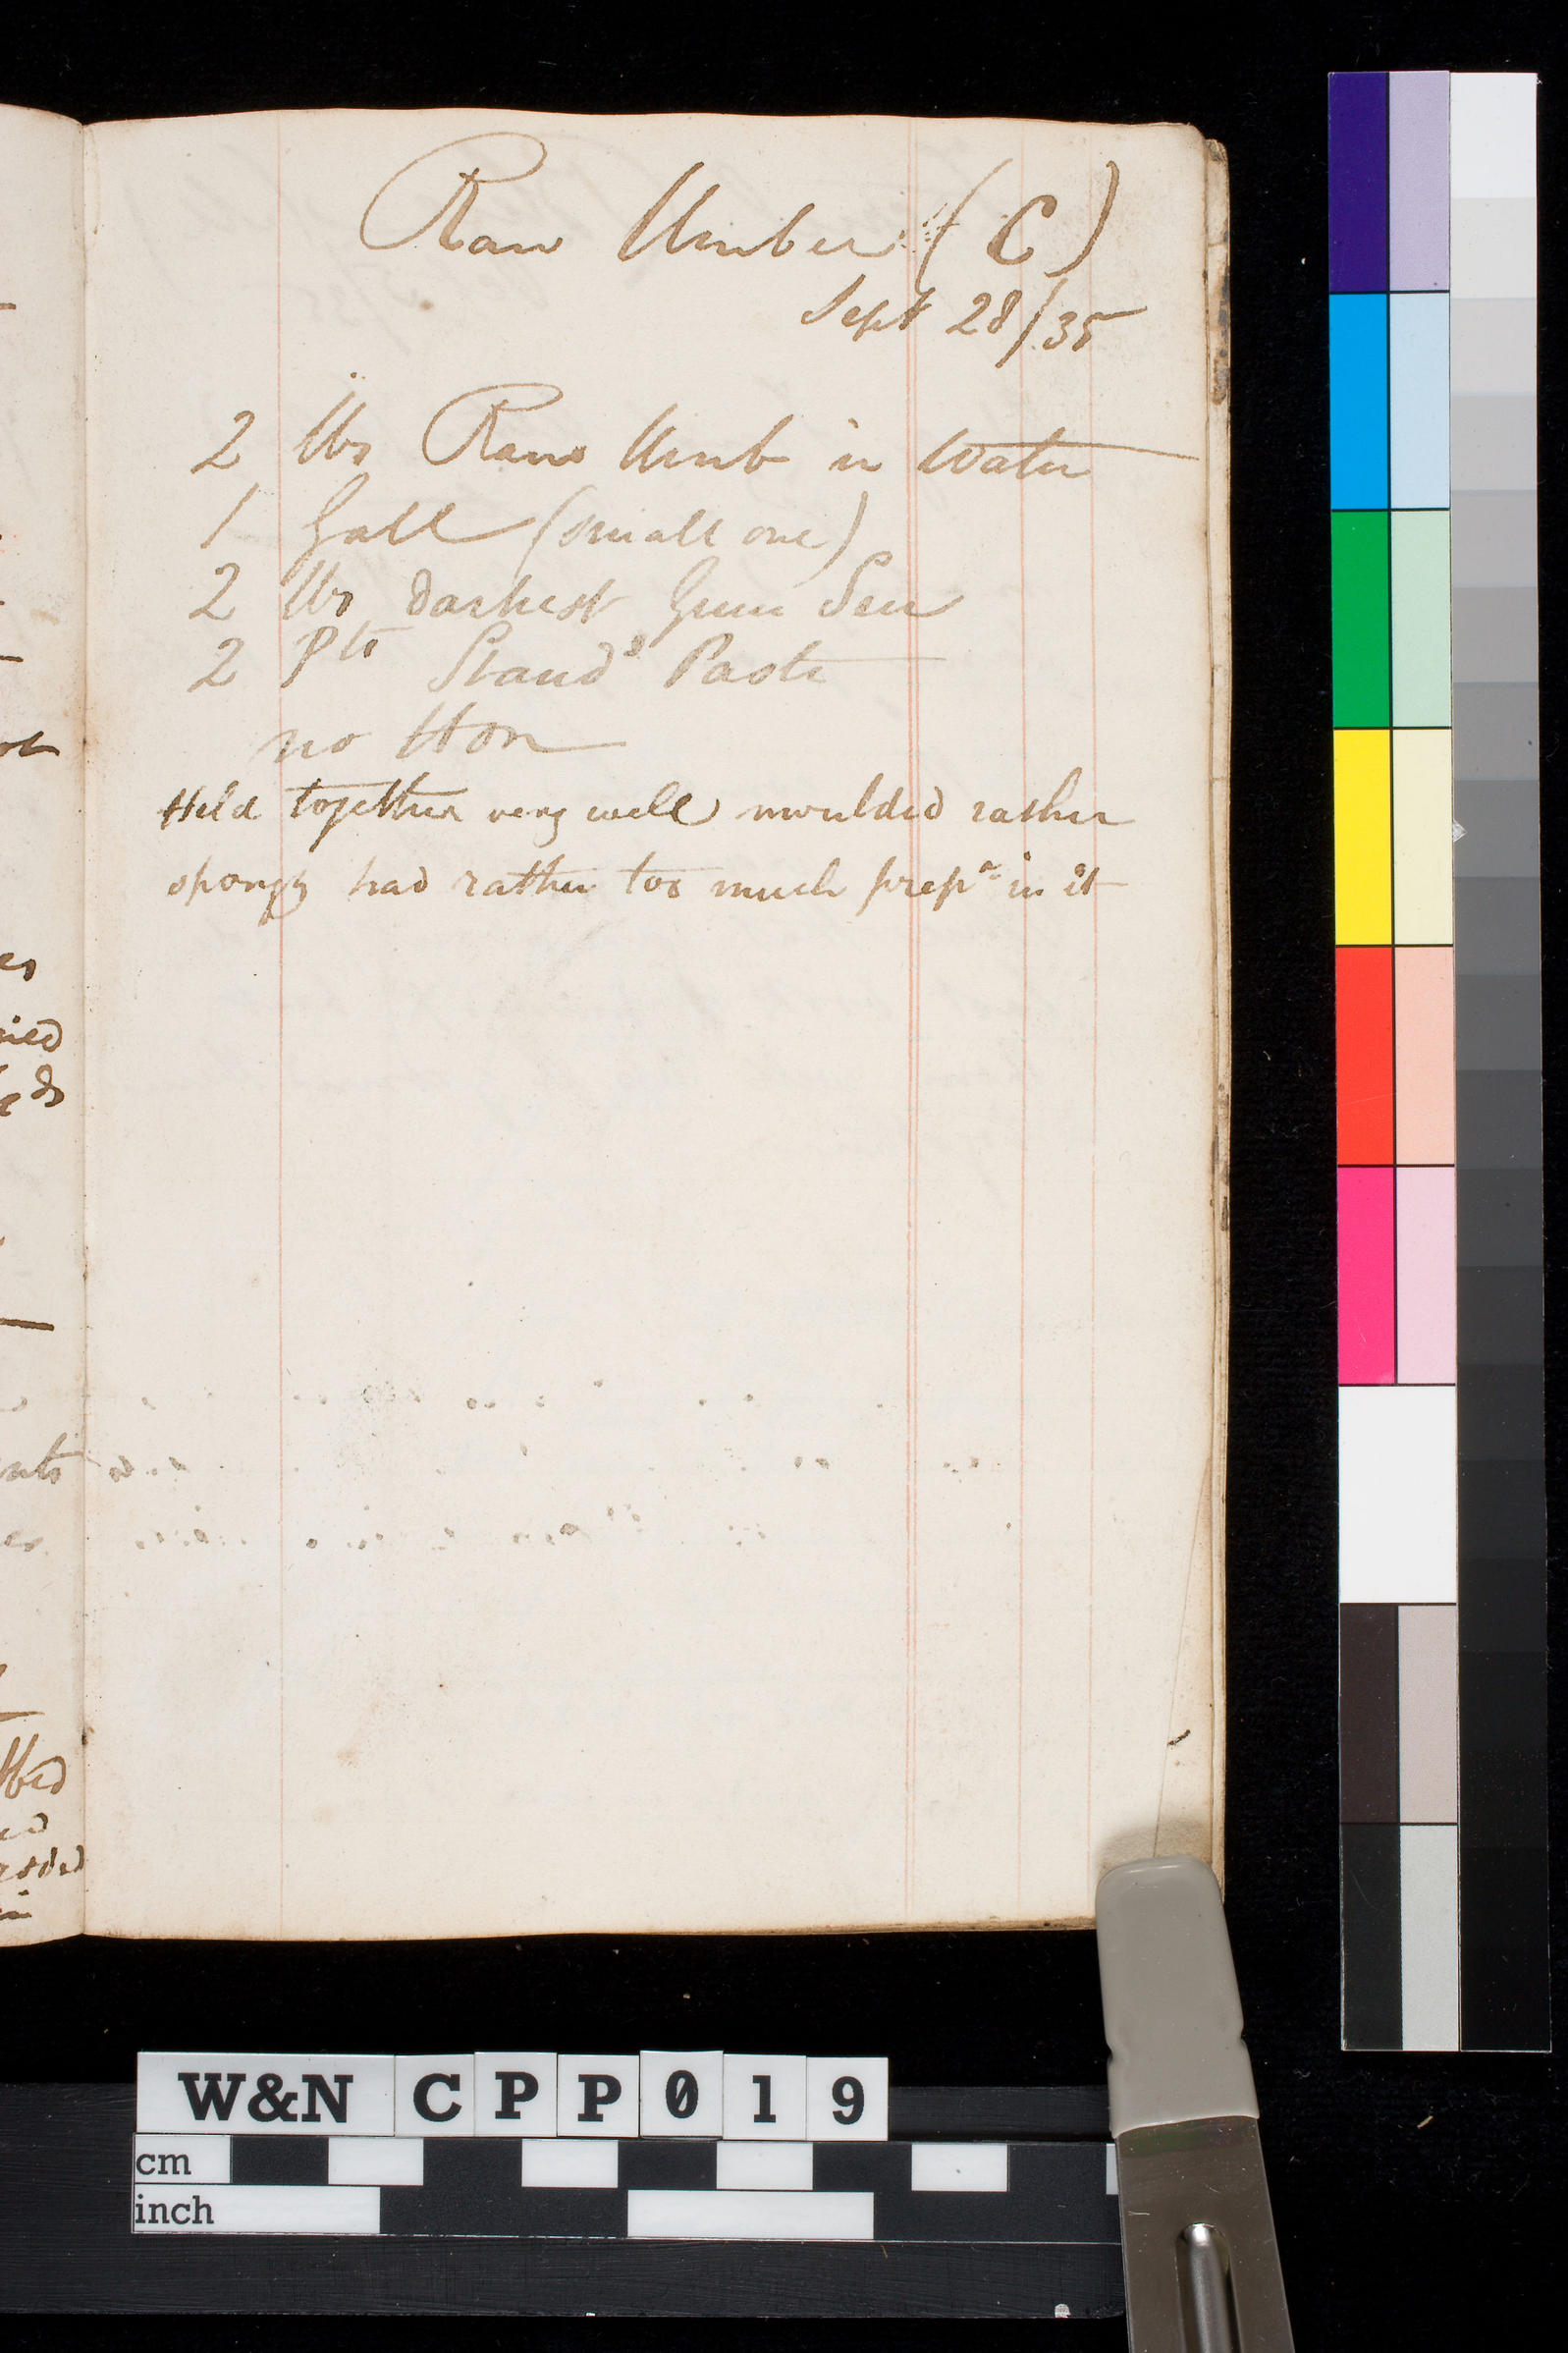 Raw Umber (C)
Sept 28/35
2 lbs Raw Umb in Water
1 Gall (small one)
2 lbs darkest Gum Sen
2 Pts Stand^d Paste
no Hon
Held together very well moulded rather
spongy had rather too much prep^n in it
nts
ied
W&N CPP019
cm
inch